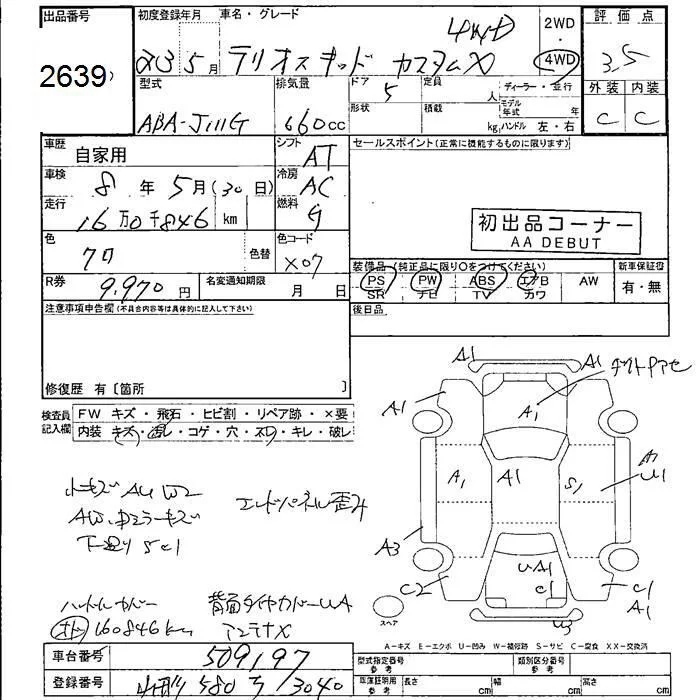 出品番号 初度登録年月 車名・グレード 2WD ・ 4WD 評価点
2639 5月 テリオスキッド カスタムX 4WD 3.5
型式 排気量 ドア 定員 人 ディーラー・並行 外装 内装
ABA-J111G 660cc 5 形状 積載 kg モデル年式 年 ハンドル 左・右 C C
車歴 自家用 シフト AT セールスポイント(正常に機能するものに限ります)
車検 8年 5月(30日) 冷房 AC
走行 16万0千846 km 燃料 G
初出品コーナー
AA DEBUT
色 クロ 色替 色コード X07
R券 9,970円 名変通知期限 月 日
装備品(純正品に限り○をつけてください) 新車保証書
PS PW ABS エアB AW 有・無
SR ナビ TV カワ
注意事項申告欄(不具合内容等は具体的に記入して下さい) 後日品
修復歴 有〔箇所 〕
検査員記入欄 FW キズ・飛石・ヒビ割・リペア跡・×要
内装 キズ・汚レ・コゲ・穴・ヌレ・キレ・破レ
A1 A1
A1 A1
A1 A1 S1 U1
A3 UA1
C2 C1 C1
A1
U3
小キズ AU W2 エンドパネル歪み
AW、ドアミラーキズ
下廻り SC1
ハンドルカバー 背面タイヤカバーUA
160846km アンテナX
スペア
A-キズ E-エクボ U-凹み W-補修跡 S-サビ C-腐食 XX-交換済
車台番号 509197 型式指定番号 参考 類別区分番号 参考
登録番号 580 3040 車庫証明用 参考 長さ cm 幅 cm 高さ cm